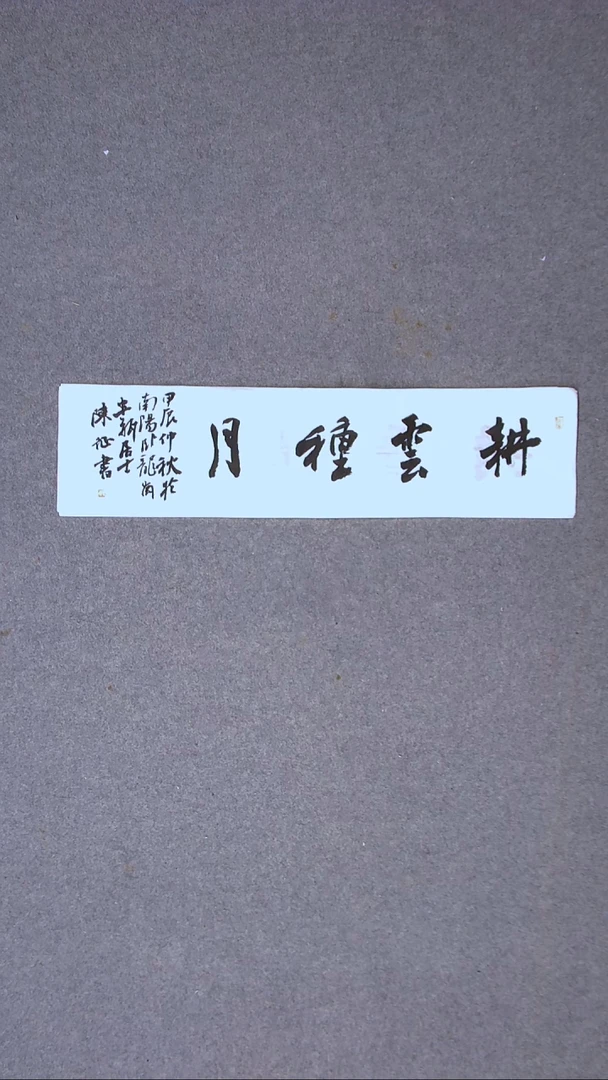 耕雲種月
甲辰仲秋於
南陽卧龍崗
居士
陳征書